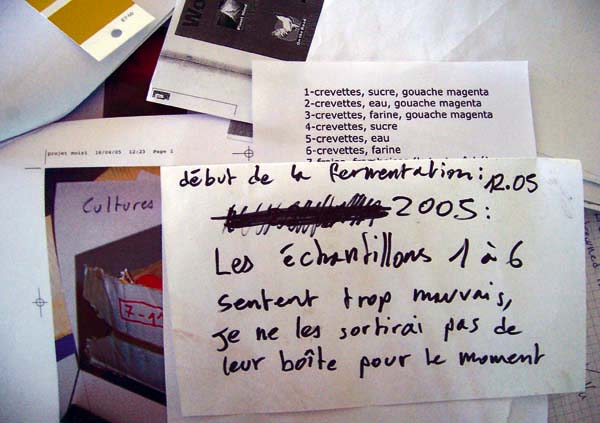 E740
Wo
1-crevettes, sucre, gouache magenta
2-crevettes, eau, gouache magenta
3-crevettes, farine, gouache magenta
4-crevettes, sucre
5-crevettes, eau
6-crevettes, farine
projet moisi 18/04/05 12:23 Page 1
Cultures
7-11
début de la fermentation: 12.05
2005:
Les échantillons 1 à 6
sentent trop mauvais,
je ne les sortirai pas de
leur boîte pour le moment